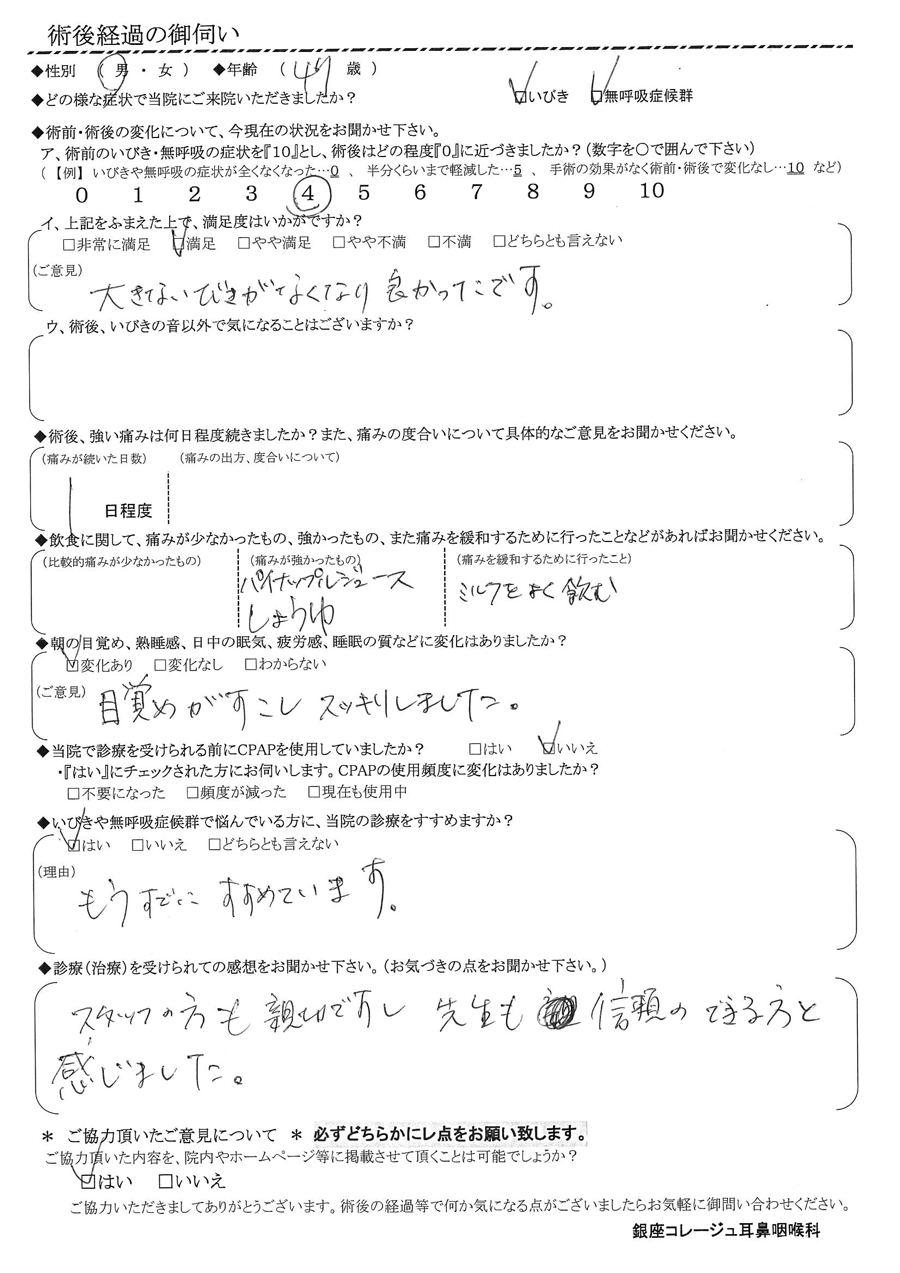 術後経過の御伺い
◆性別 ( 男 ・ 女 ) ◆年齢 ( 47 歳 )
◆どの様な症状で当院にご来院いただきましたか? ☑いびき ☑無呼吸症候群
◆術前・術後の変化について、今現在の状況をお聞かせ下さい。
ア、術前のいびき・無呼吸の症状を『10』とし、術後はどの程度『0』に近づきましたか?(数字を○で囲んで下さい)
(【例】 いびきや無呼吸の症状が全くなくなった…0 、 半分くらいまで軽減した…5 、 手術の効果がなく術前・術後で変化なし…10 など)
0 1 2 3 4 5 6 7 8 9 10
イ、上記をふまえた上で、満足度はいかがですか?
□非常に満足 ☑満足 □やや満足 □やや不満 □不満 □どちらとも言えない
(ご意見)
大きないびきがなくなり良かったです。
ウ、術後、いびきの音以外で気になることはございますか?
◆術後、強い痛みは何日程度続きましたか?また、痛みの度合いについて具体的なご意見をお聞かせください。
(痛みが続いた日数) (痛みの出方、度合いについて)
1 日程度
◆飲食に関して、痛みが少なかったもの、強かったもの、また痛みを緩和するために行ったことなどがあればお聞かせください。
(比較的痛みが少なかったもの) (痛みが強かったもの) (痛みを緩和するために行ったこと)
パイナップルジュース
しょうゆ
ミルクをよく飲む
◆朝の目覚め、熟睡感、日中の眠気、疲労感、睡眠の質などに変化はありましたか?
☑変化あり □変化なし □わからない
(ご意見)
目覚めがすこしスッキリしました。
◆当院で診療を受けられる前にCPAPを使用していましたか? □はい ☑いいえ
・『はい』にチェックされた方にお伺いします。CPAPの使用頻度に変化はありましたか?
□不要になった □頻度が減った □現在も使用中
◆いびきや無呼吸症候群で悩んでいる方に、当院の診療をすすめますか?
☑はい □いいえ □どちらとも言えない
(理由)
もうすでにすすめています。
◆診療(治療)を受けられての感想をお聞かせ下さい。(お気づきの点をお聞かせ下さい。)
スタッフの方も親切ですし 先生も信頼のできる方と
感じました。
* ご協力頂いたご意見について * 必ずどちらかにレ点をお願い致します。
ご協力頂いた内容を、院内やホームページ等に掲載させて頂くことは可能でしょうか?
☑はい □いいえ
ご協力いただきましてありがとうございます。術後の経過等で何か気になる点がございましたらお気軽に御問い合わせください。
銀座コレージュ耳鼻咽喉科